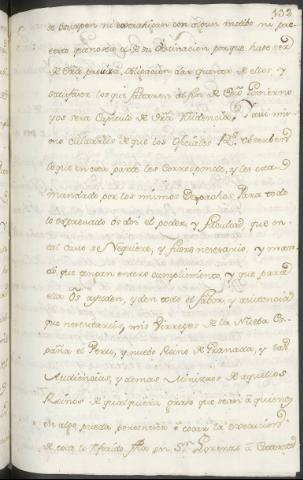 132
se ocupen ni extrahigan con algun motibo ni pre
texto que no sea de su destinacion porque habeis de ser
de Vra precisa obligacion dar quenta de ellos, y
satisfacer los que faltaren al fin de Vro Govierno
y os sera Capitulo de Vra Residencia. Y asi mis
mo cuidareis de que los Oficiales Rs. observen
lo que en esta parte les corresponde, y les esta
mandado por los mismos Despachos. Para todo
lo expresado os doi el poder, y facultad que en
tal caso se requiere, y fuere necesario, y man
do, que tengan entero cumplimiento, y que para
ella os ayuden, y den todo el fabor, y asistencia
que necesitareis, mis Virreyes de la Nueba Es
paña el Peru, y nuebo Reino de Granada, y las
Audiencias, y demas Ministros de aquellos
Reinos de qualquiera grado que sean á quienes
en algo pueda pertenecer ó tocar la execucion
de todo lo referido. Fha en Sn Lorenzo á Catorce